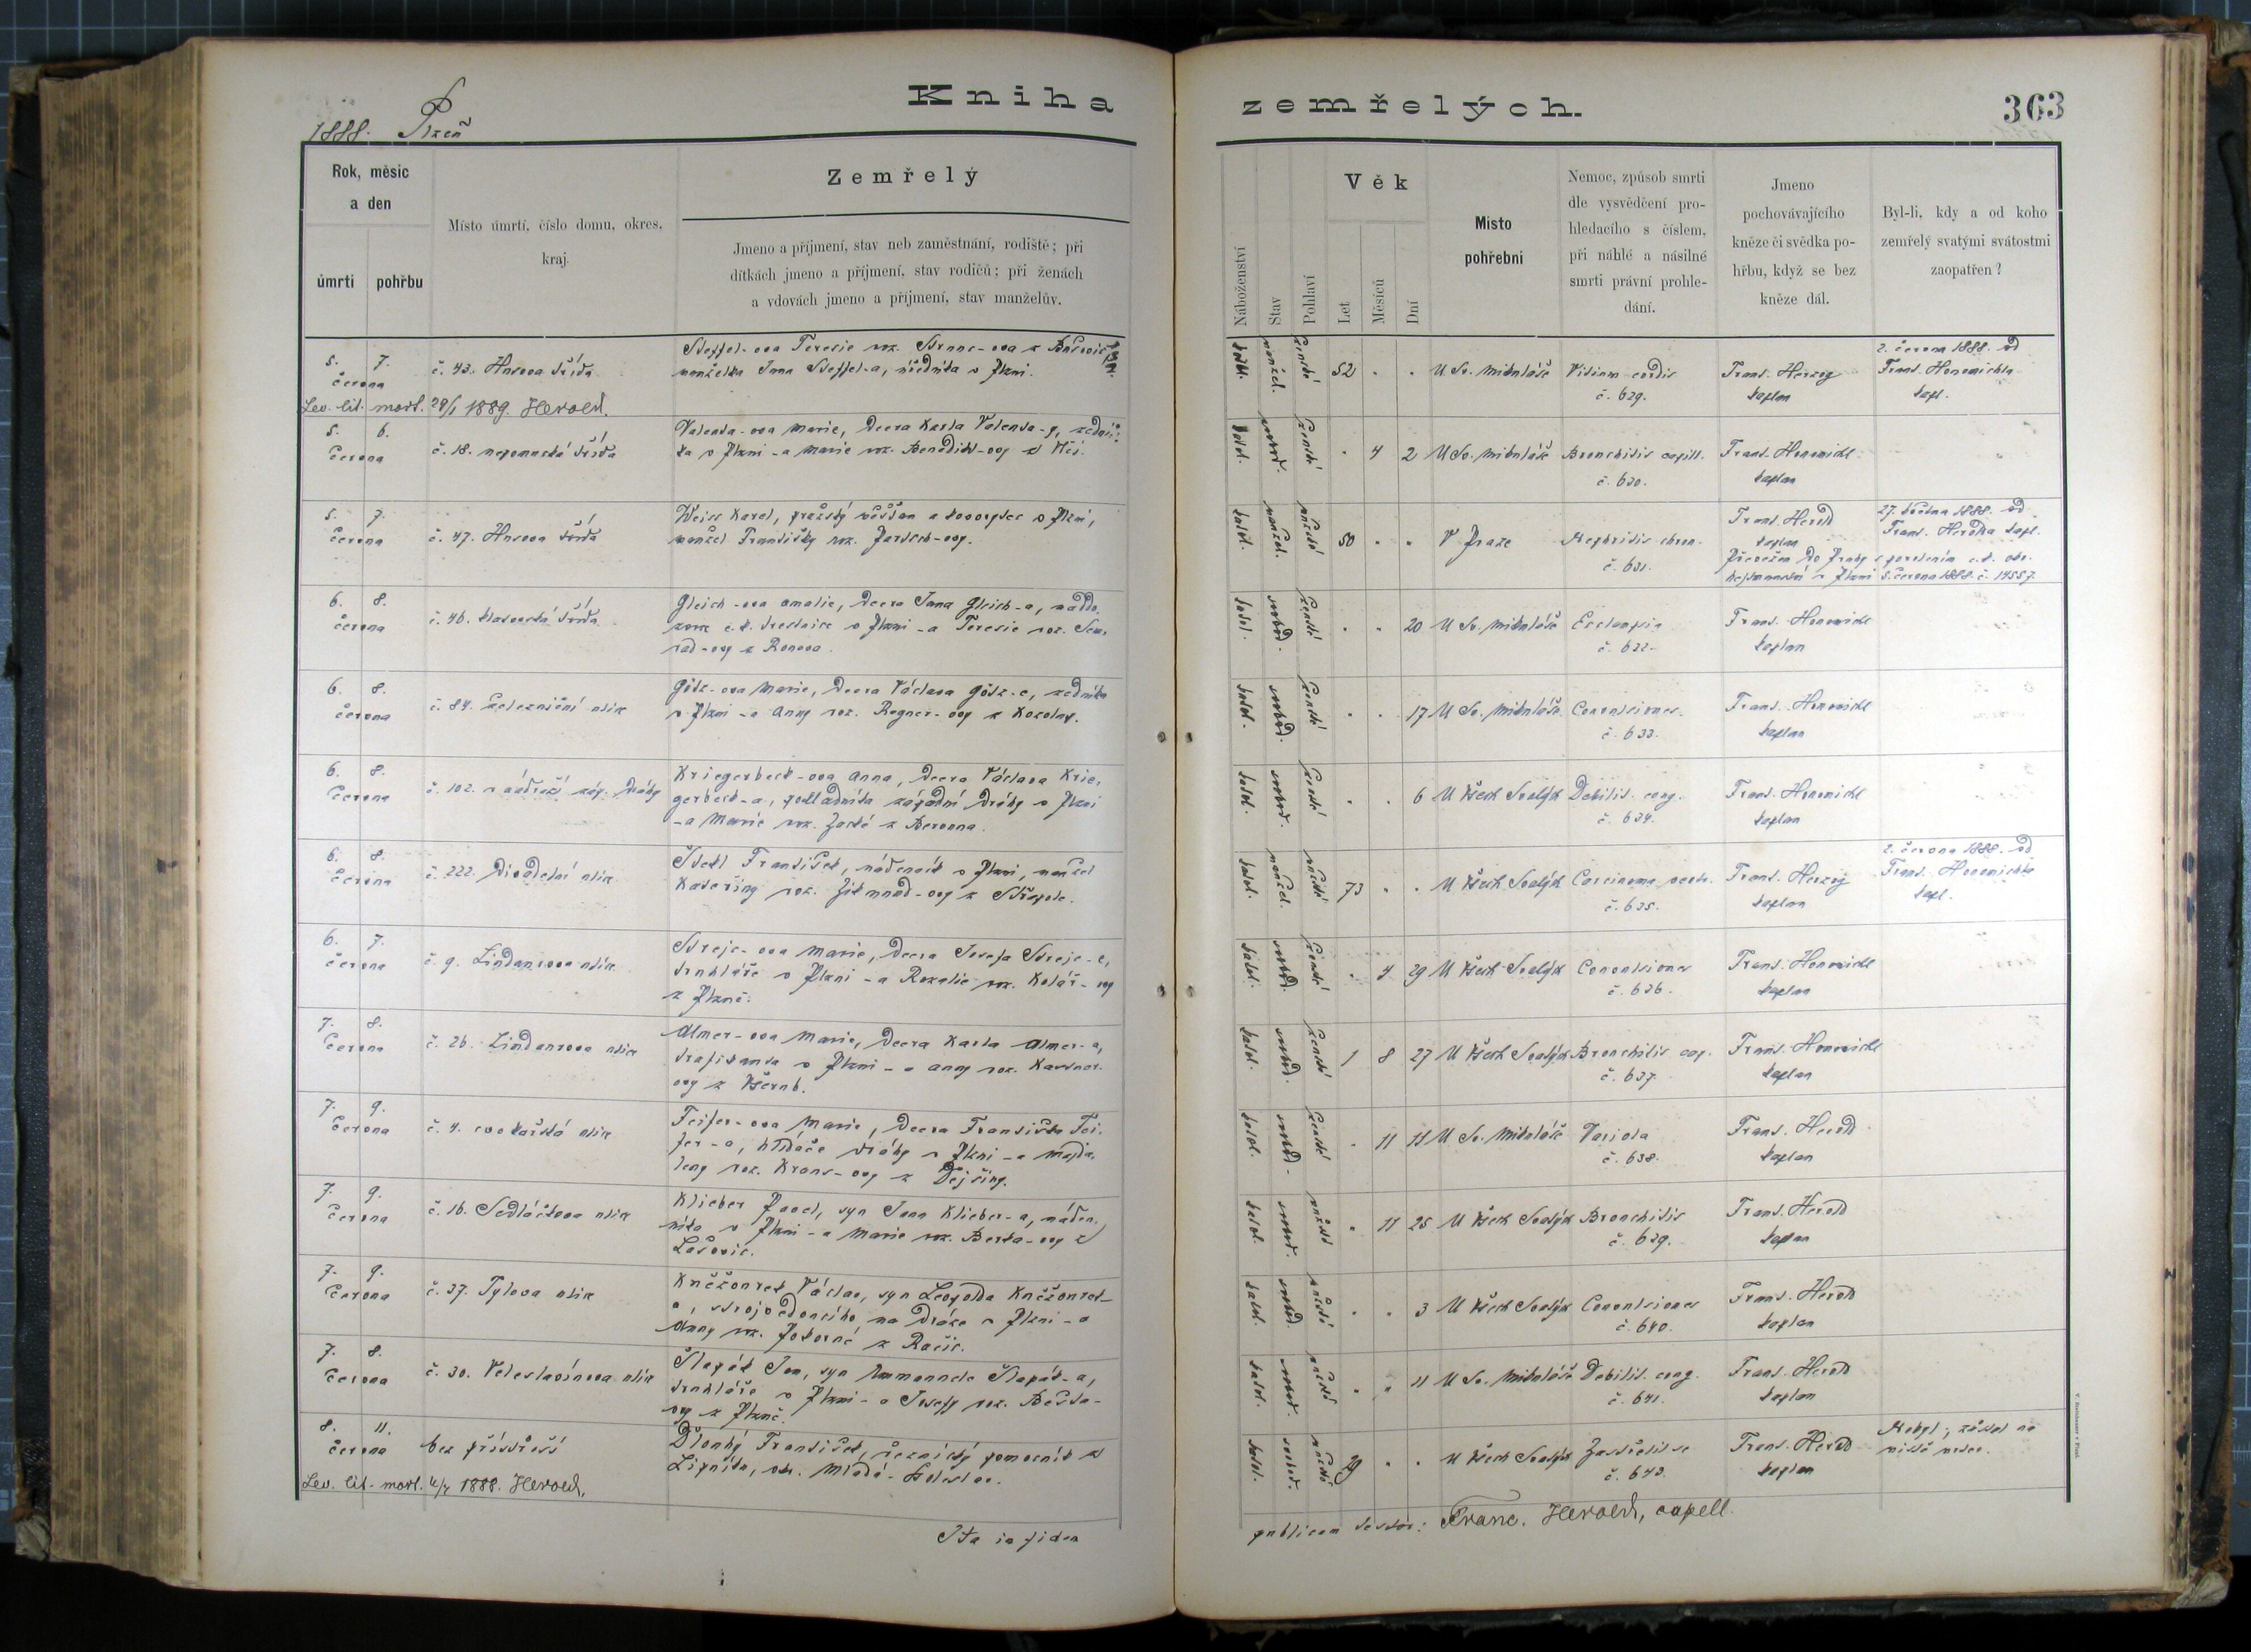 Kniha zemřelých.
363
1888. Plzeň
Rok, měsíc
a den
úmrtí
pohřbu
Místo úmrtí, číslo domu, okres,
kraj.
Zemřelý
Jmeno a příjmení, stav neb zaměstnání, rodiště; při
dítkách jmeno a příjmení, stav rodičů; při ženách
a vdovách jmeno a příjmení, stav manželův.
Náboženství
Stav
Pohlaví
Věk
Let
Měsíců
Dní
Místo
pohřební
Nemoc, způsob smrti
dle vysvědčení pro-
hledacího s číslem,
při náhlé a násilné
smrti právní prohle-
dání.
Jmeno
pochovávajícího
kněze či svědka po-
hřbu, když se bez
kněze dál.
Byl-li, kdy a od koho
zemřelý svatými svátostmi
zaopatřen?
5. 7.
června
č. 43. Husova třída
Steffel-ova Teresie roz.
manželka Jana Steffel-a, úředníka v Plzni.
kathol. manžel. ženské 52 . . U Sv. Mikuláše
Vitium cordis
č. 629.
Frant. Herzog
kaplan
2. června 1888. od
Frant. Honomichla
kapl.
Lev. lit. mort. 29/1 1889. Herold.
5. 6.
června
č. 18. nepomucká třída
Valenta-ova Marie, dcera Karla Valenta-y, zední-
ka v Plzni - a Marie roz. Benedikt-ovy z
kathol. svobod. ženské . 4 2 U Sv. Mikuláše
Bronchitis capill.
č. 630.
Frant. Honomichl
kaplan
5. 7.
června
č. 47. Husova třída
Weiss Karel, pražský měšťan a v Plzni,
manžel Františky roz.
kathol. manžel. mužské 50 . . V Praze
Nephritis chron.
č. 631.
Frant. Herold
kaplan
27. května 1888. od
Frant. Herolda kapl.
Převežen do Prahy s povolením c.k. okr.
hejtmanství v Plzni 5. června 1888. č. 14557.
6. 8.
června
č. 46. klatovská třída
Gleich-ova Amalie, dcera Jana Gleich-a, naddo-
zorce c.k. trestnice v Plzni - a Teresie roz. Sem-
rad-ovy z Ronova.
kathol. svobod. ženské . . 20 U Sv. Mikuláše
Eclampsia
č. 632.
Frant. Honomichl
kaplan
6. 8.
června
č. 84. železniční ulice
Götz-ova Marie, dcera Václava Götz-e, zedníka
v Plzni - a Anny roz. Regner-ovy z Kozolup.
kathol. svobod. ženské . . 17 U Sv. Mikuláše
Convulsiones.
č. 633.
Frant. Honomichl
kaplan
6. 8.
června
č. 102. v nádraží záp. dráhy
Kriegerbeck-ova Anna, dcera Václava Krie-
gerbeck-a, pokladníka západní dráhy v Plzni
- a Marie roz. z Berouna.
kathol. svobod. ženské . . 6 U Všech Svatých
Debilit. cong.
č. 634.
Frant. Honomichl
kaplan
6. 8.
června
č. 222. Divadelní ulice
František, nádeník v Plzni, manžel
Kateřiny roz.
kathol. manžel. mužské 73 . . U Všech Svatých
Carcinoma
č. 635.
Frant. Herzog
kaplan
2. června 1888. od
Frant. Honomichla
kapl.
6. 7.
června
č. 9. Lindaurova ulice
Streje-ova Marie, dcera Josefa Streje-e,
truhláře v Plzni - a Rozalie roz. Kolář-ovy
z Plzně.
kathol. svobod. ženské . 4 29 U Všech Svatých
Convulsiones
č. 636.
Frant. Honomichl
kaplan
7. 8.
června
č. 26. Lindaurova ulice
Almer-ova Marie, dcera Karla Almer-a,
trafikanta v Plzni - a Anny roz.
ovy z Všerub.
kathol. svobod. ženské 1 8 27 U Všech Svatých
Bronchitis cap.
č. 637.
Frant. Honomichl
kaplan
7. 9.
června
č. 4. cvokařská ulice
Feifer-ova Marie, dcera Františka Fei-
fer-a, hlídače dráhy v Plzni - a Majda-
leny roz. Kraus-ovy z Dejšiny.
kathol. svobod. ženské . 11 11 U Sv. Mikuláše
Variola
č. 638.
Frant. Herold
kaplan
7. 9.
června
č. 16. Sedláčkova ulice
Klieber Pavel, syn Jana Klieber-a, náden-
níka v Plzni - a Marie roz. Berka-ovy z
kathol. svobod. mužské . 11 25 U Všech Svatých
Bronchitis
č. 639.
Frant. Herold
kaplan
7. 9.
června
č. 37. Tylova ulice
Kněžourek Václav, syn Leopolda Kněžourek-
a, strojvedoucího na dráze v Plzni - a
Anny roz. Pokorné z Račic.
kathol. svobod. mužské . . 3 U Všech Svatých
Convulsiones
č. 640.
Frant. Herold
kaplan
7. 8.
června
č. 30. Veleslavínova ulice
Šlapák Jan, syn Emmanuele Šlapák-a,
truhláře v Plzni - a Josefy roz.
ovy z Plzně.
kathol. svobod. mužské . . 11 U Sv. Mikuláše
Debilit. cong.
č. 641.
Frant. Herold
kaplan
8. 11.
června
bez přístřeší
Dlouhý František, řeznický pomocník z
Lipníka, okr. Mladá-Boleslav.
kathol. svobod. mužské 29 . . U Všech Svatých
Zastřelil se
č. 643.
Frant. Herold
kaplan
Nebyl; zůstal na
místě mrtev.
Lev. lit. mort. 4/7 1888. Herold.
Ita in fidem
publicam testor: Franc. Herold, capell.